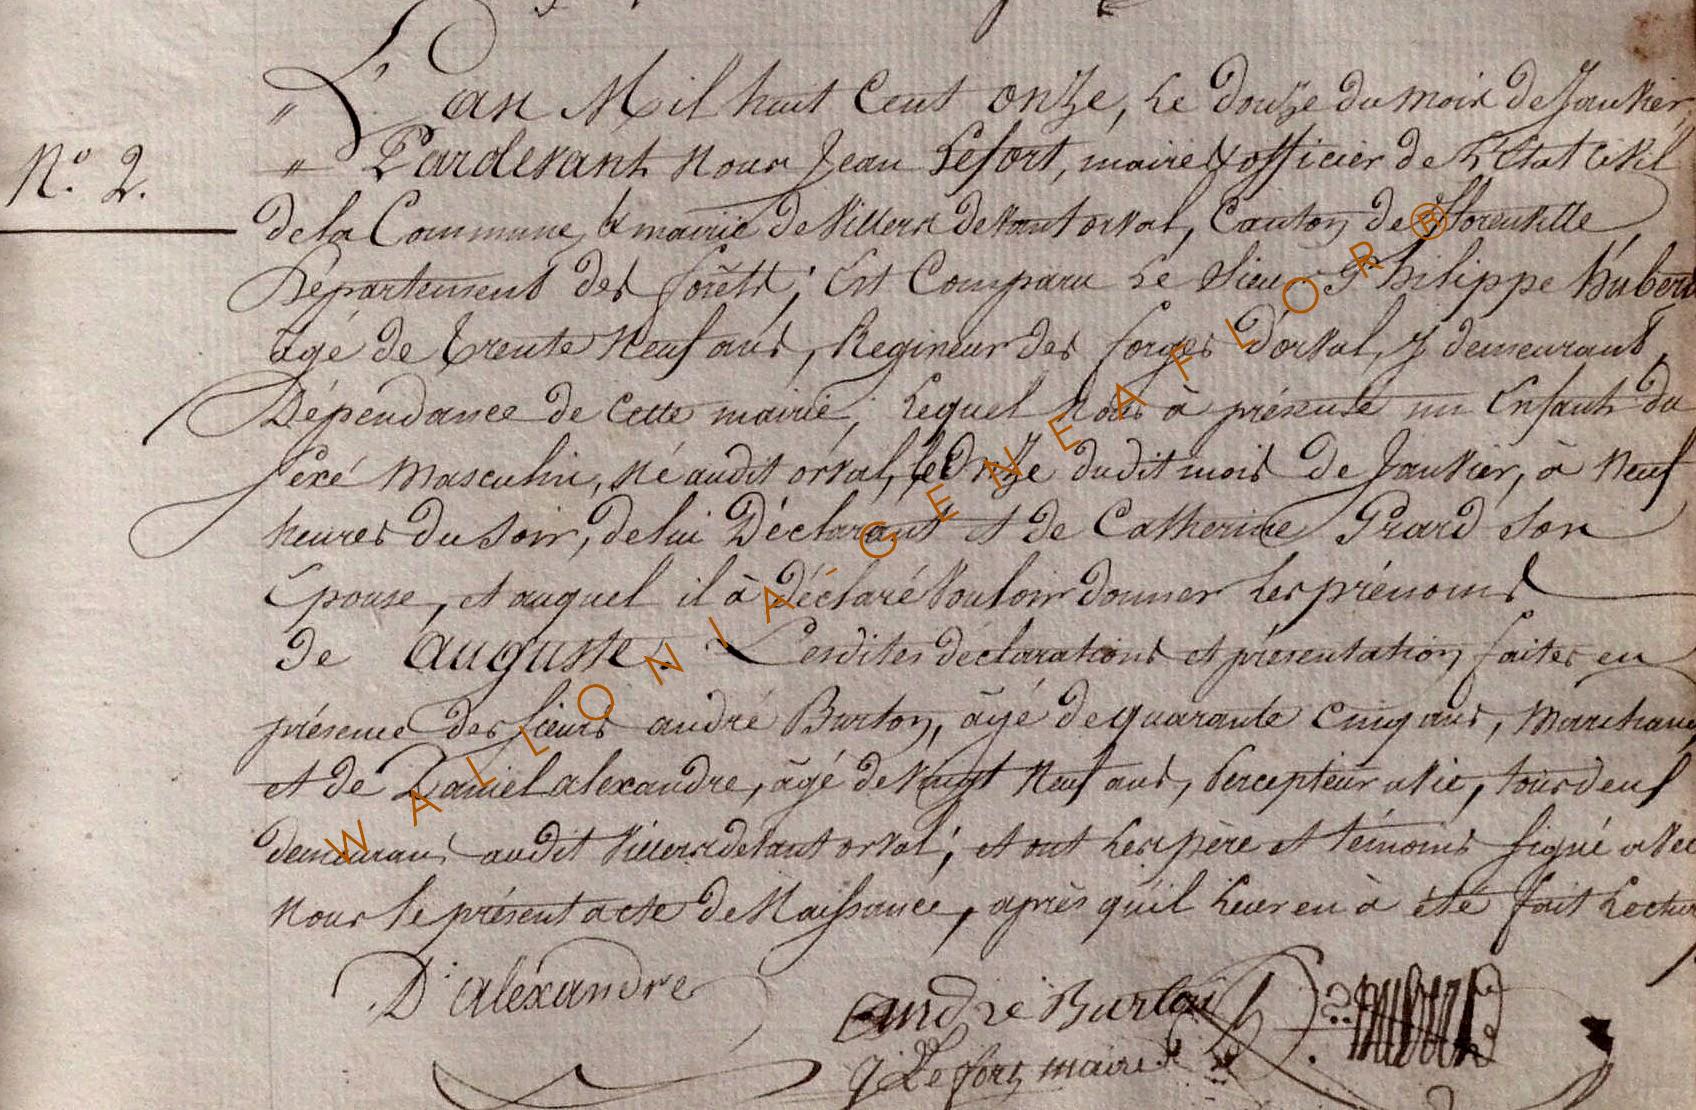 L'an Mil huit Cent onze, Le douze du mois de Janvier,
N.° 2.
" Pardevant Nous Jean Lefort, maire & officier de L'Etat Civil
de la Commune & mairie de Villers devant orval, Canton de florenville
Département des forêts; Est Comparu Le Sieur Philippe Hubert
agé de Trente Neuf ans, Régisseur des forges D'orval, y demeurant,
Dépendance de Cette mairie, Lequel Nous à présenté un Enfant du
sexé Masculin, Né audit orval, le Onze dudit mois De Janvier, à Neuf
heures du Soir, de lui Déclarant et de Catherine Prard Son
Epouse, et auquel il à déclaré Vouloir donner Les prénoms
De Auguste. Lesdites déclarations et présentation faites en
présence des sieurs andré Burton, agé de quarante Cinq ans, Marchand
et de Daniel alexandre, agé de Vingt Neuf ans, Percepteur à Vie, tous deux
demeurans audit Villers devant orval; et ont Les père et témoins signé avec
Nous le présent acte de Naissance, après qu'il Leur en à été fait Lecture
D. alexandre
andré Burton
J. Lefort maire
WALLONIA GENEAFLOR®